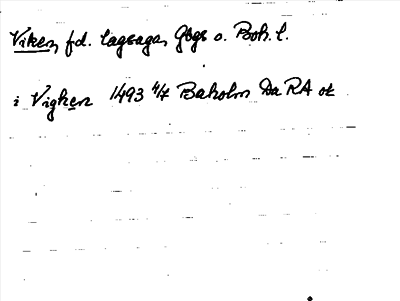 Viken, fd. lagsaga, Gbgs o. Boh. l.
i Vighen 1493 4/7 Baholm Da RA ok